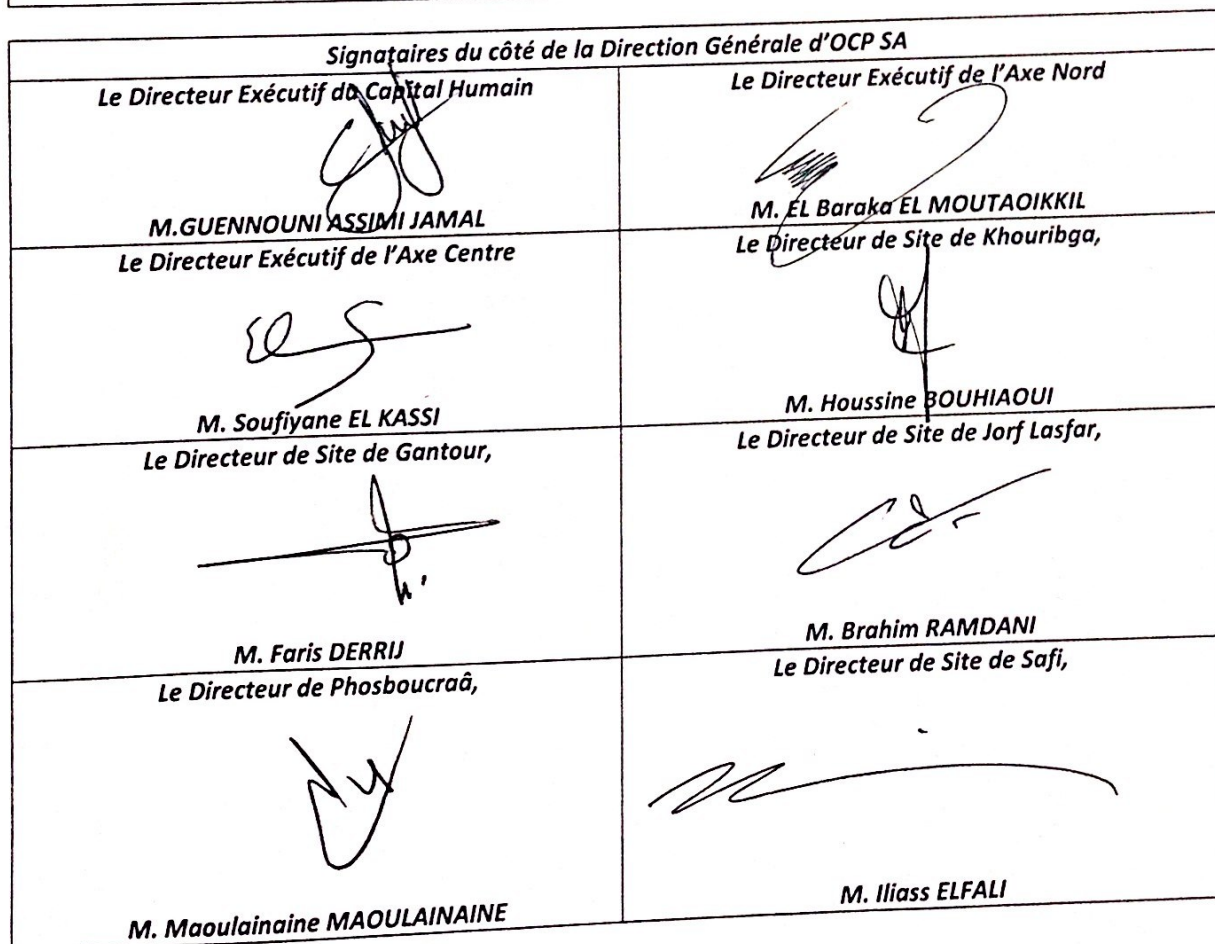 Signataires du côté de la Direction Générale d'OCP SA
Le Directeur Exécutif du Capital Humain
M.GUENNOUNI ASSIMI JAMAL
Le Directeur Exécutif de l'Axe Nord
M. EL Baraka EL MOUTAOIKKIL
Le Directeur Exécutif de l'Axe Centre
M. Soufiyane EL KASSI
Le Directeur de Site de Khouribga,
M. Houssine BOUHIAOUI
Le Directeur de Site de Gantour,
M. Faris DERRIJ
Le Directeur de Site de Jorf Lasfar,
M. Brahim RAMDANI
Le Directeur de Phosboucraâ,
M. Maoulainaine MAOULAINAINE
Le Directeur de Site de Safi,
M. Iliass ELFALI